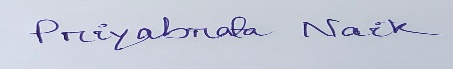 Priyabrata Naik